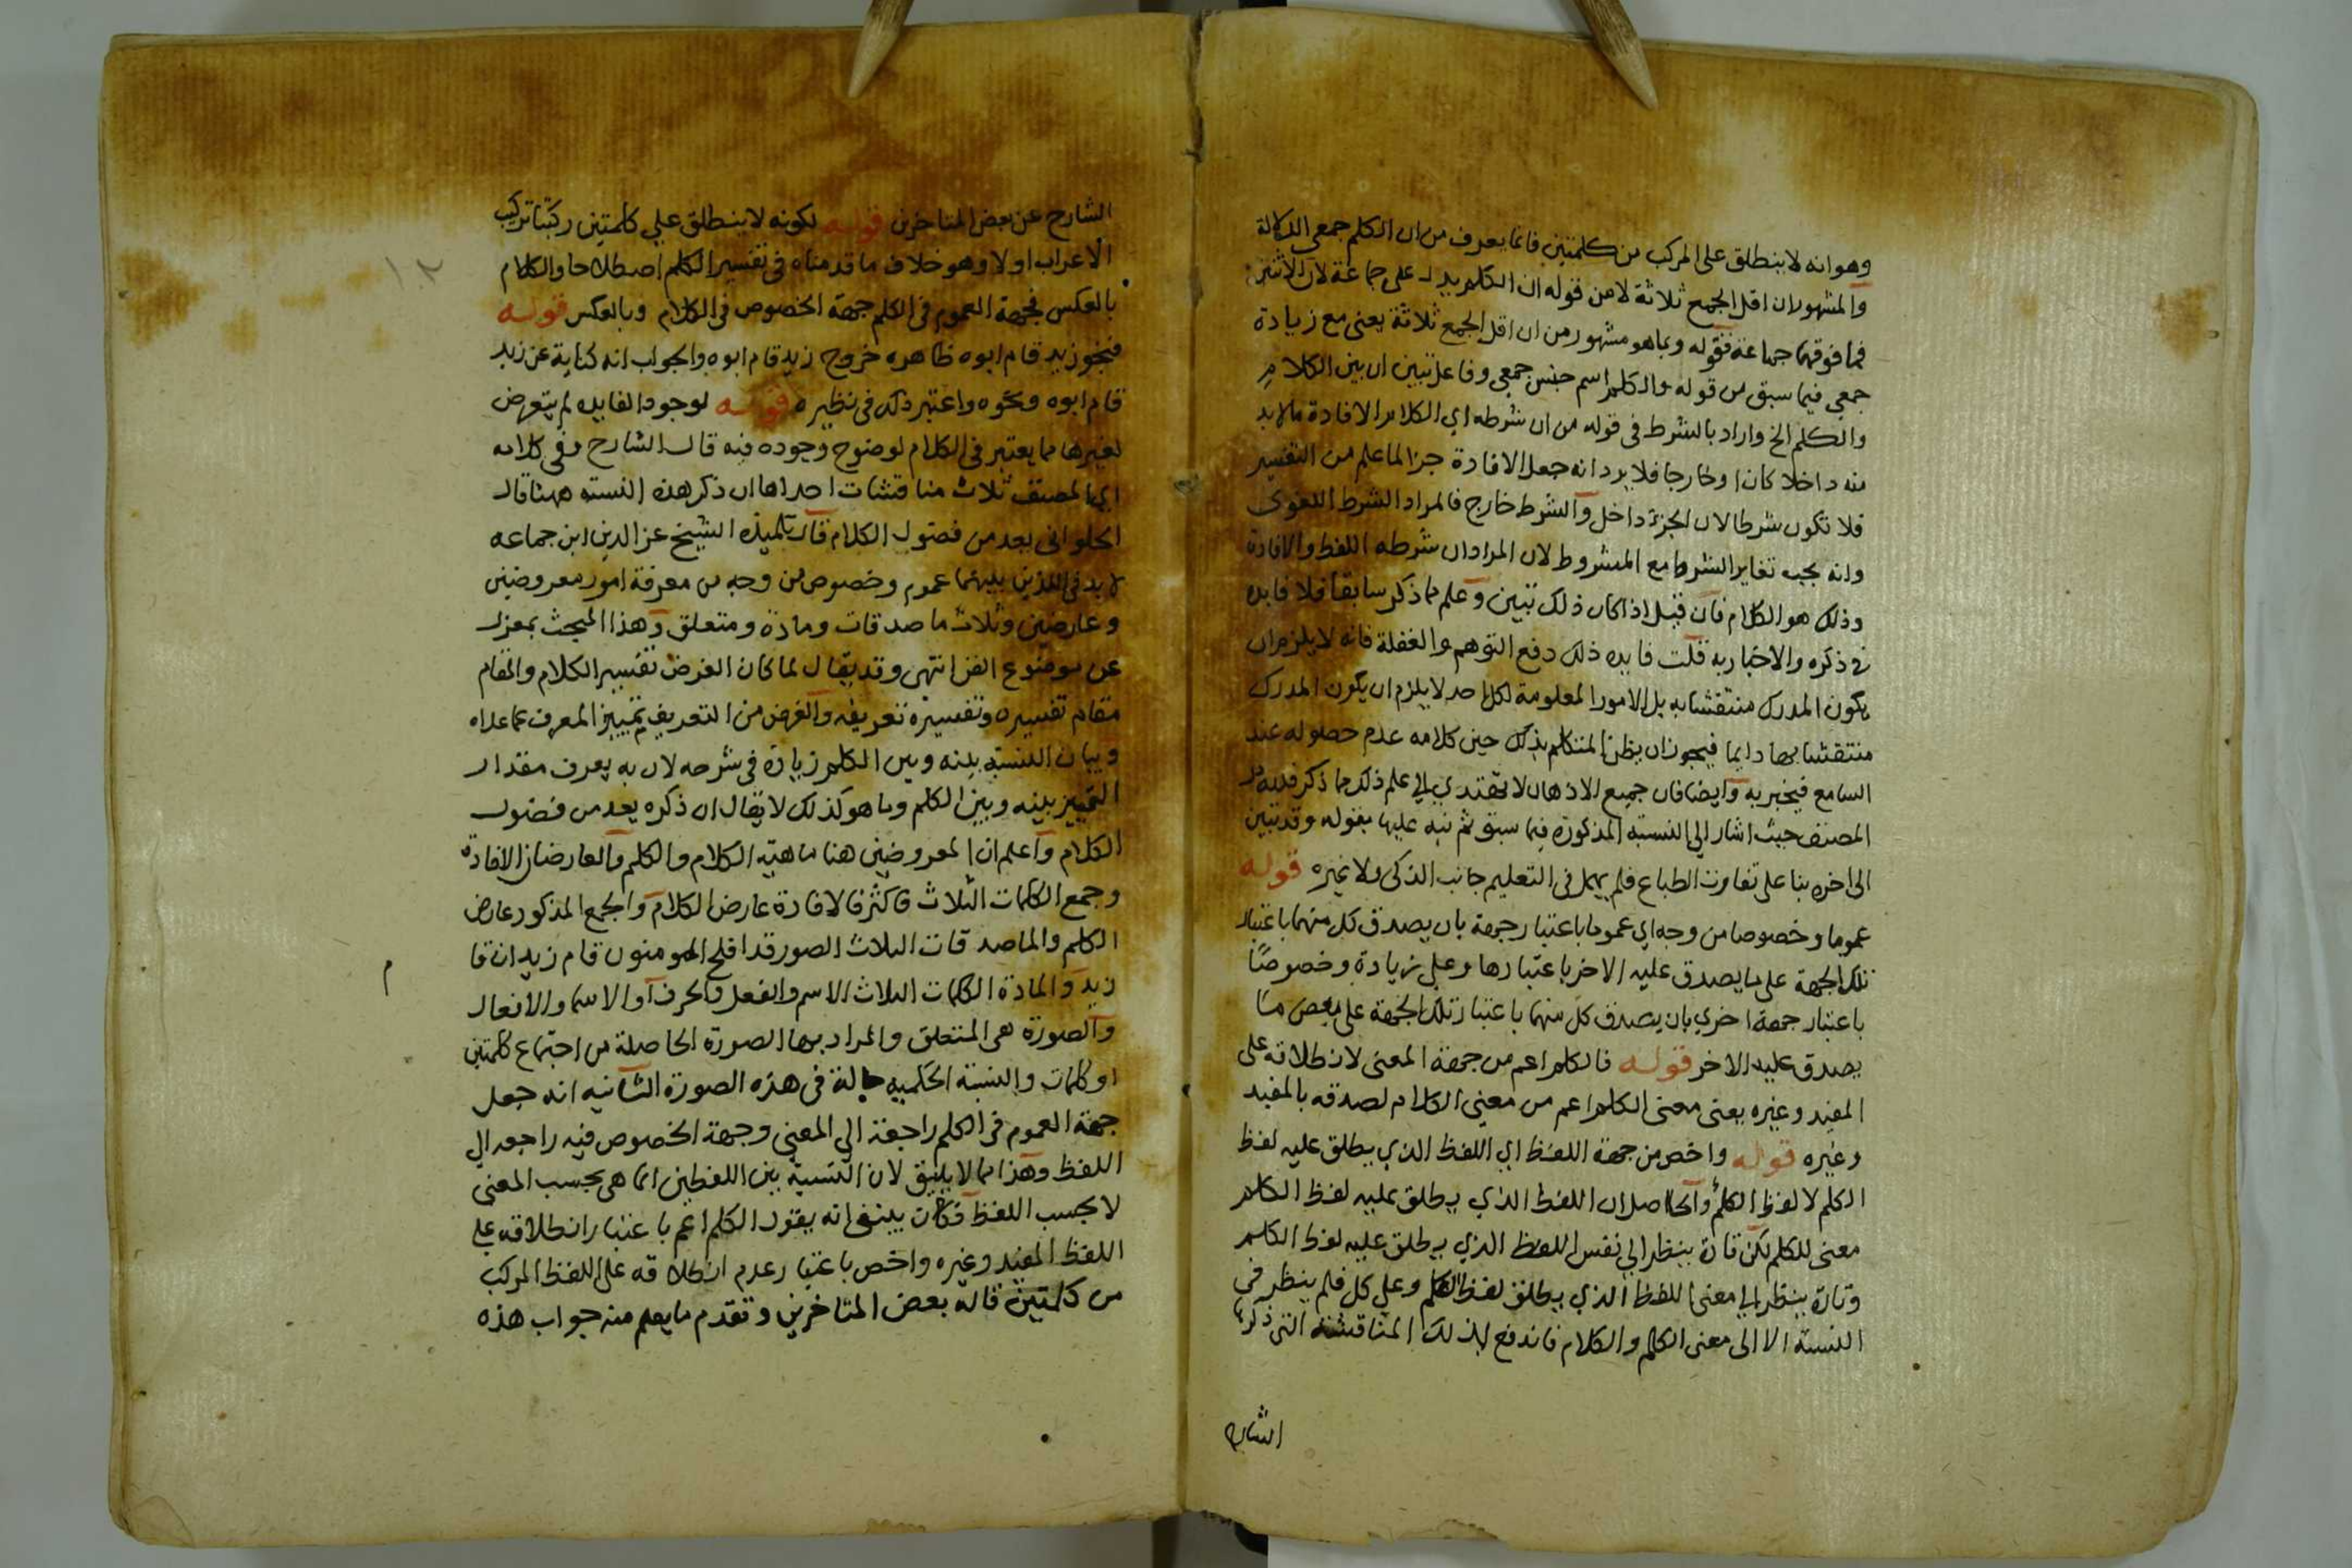 وهو انه لا ينطلق على المركب من كلمتين فانما يعرف من ان الكلم جمعي الدلالة
والمشهوران اقل الجمع ثلاثة لا من قوله ان الكلم يدل على جماعة لان الاثنين
فما فوقهما جماعة فقوله وبما هو مشهور من ان اقل الجمع ثلاثة يعني مع زيادة
جمعي فيما سبق من قوله والكلم اسم جنس جمعي وفاعل تبين ان بين الكلام
والكلم الخ واراد بالشرط في قوله من ان شرطه اي الكلام الافادة ما لابد
منه داخلا كان او خارجا فلا يرد انه جعل الافادة جزا لما علم من التفسير
فلا تكون شرطا لان الجزء داخل والشرط خارج فالمراد الشرط اللغوى
وانه يجب تغاير الشرط مع المشروط لان المراد ان شرطه اللفظ والافادة
وذلك هو الكلام فان قيل اذا كان ذلك تبين وعلم مما ذكر سابقا فلا فايده
في ذكره والاخبار به قلت فايده ذلك دفع التوهم والغفلة فانه لا يلزم ان
يكون المدرك منتقشا به بل الامور المعلومة لكل احد لا يلزم ان يكون المدرك
منتقشا بها دايما فيجوز ان يظن المتكلم بذلك حين كلامه عدم حصوله عند
السامع فيخبر به وايضا فان جميع الاذهان لا تهتدي الي علم ذلك مما ذكر فلله در
المصنف حيث اشار الي النسبته المذكورة فيما سبق ثم نبه عليها بقوله وقد تبين
الى اخره بنا على تفاوت الطباع فلم يهمل في التعليم جانب الذكى ولا غيره قوله
عموما وخصوصا من وجه اي عموما باعتبار جهة بان يصدق كل منهما باعتبار
تلك الجهة على ما يصدق عليه الاخر باعتبارها وعلي زيادة وخصوصًا
باعتبار جهة اخري بان يصدق كل منهما باعتبار تلك الجهة على بعض ما
يصدق عليه الاخر قوله فالكلم اعم من جهة المعنى لانطلاقه على
المفيد وغيره يعنى معنى الكلم اعم من معني الكلام لصدقه بالمفيد
وغيره قوله واخص من جهة اللفظ اي اللفظ الذي يطلق عليه لفظ
الكلم لا لفظ الكلم والحاصل ان اللفظ الذي يطلق عليه لفظ الكلم
معنى للكلم لكن تارة ينظر الي نفس اللفظ الذي يطلق عليه لفظ الكلم
وتارة ينظر الي معنى اللفظ الذي يطلق لفظ الكلم وعلي كل فلم ينظر في
النسبة الا الى معنى الكلم والكلام فاندفع بذلك المناقشة التى ذكرها
الشارح
الشارح عن بعض المتاخرين قوله لكونه لا ينطلق علي كلمتين ركبتا تركيب
الاعراب اولا وهو خلاف ما قدمناه في تفسير الكلم اصطلاحا والكلام
بالعكس فجهة العموم في الكلم جهة الخصوص في الكلام وبالعكس قوله
فنحو زيد قام ابوه ظاهره خروج زيد قام ابوه والجواب انه كناية عن زيد
قام ابوه ونحوه واعتبر ذلك في نظيره قوله لوجود الفايده لم يتعرض
لغيرها مما يعتبر في الكلام لوضوح وجوده فيه قال الشارح وفي كلام
المصنف ثلاث مناقشات احداها ان ذكر هذه النسبته ههنا قال
الحلواني يعد من فضول الكلام قال تلميذه الشيخ عز الدين ابن جماعه
لابد في اللذين بينهما عموم وخصوص من وجه من معرفة امور معروضين
وعارضين وثلاث ما صدقات ومادة ومتعلق وهذا المبحث بمعزل
عن موضوع الفن انتهى وقد يقال لما كان الغرض تفسير الكلام والمقام
مقام تفسيره وتفسيره تعريفه والغرض من التعريف تمييز المعرف عما عداه
وبيان النسبة بينه وبين الكلم زيادة في شرحه لان به يعرف مقدار
التمييز بينه وبين الكلم وما هو كذلك لا يقال ان ذكره يعد من فضول
الكلام واعلم ان المعروضين هنا ماهية الكلام والكلم والعارضان الافادة
وجمع الكلمات الثلاث فاكثر فالافادة عارض الكلام والجمع المذكور عارض
الكلم والماصدقات الثلاث الصور قد افلح المومنون قام زيد ان قا
م
زيد والمادة الكلمات الثلاث الاسم والفعل والحرف او الاسما والافعال
والصورة هى المتعلق والمراد بها الصورة الحاصلة من اجتماع كلمتين
او كلمات والنسبة الحكمية حالة في هذه الصورة الثانيه انه جعل
جهة العموم في الكلم راجعة الي المعني وجهة الخصوص فيه راجعه الي
اللفظ وهذا مما لا يليق لان النسبة بين اللفظين انما هى بحسب المعنى
لا بحسب اللفظ فكان ينبغى انه يقول الكلم اعم باعتبار انطلاقه علي
اللفظ المفيد وغيره واخص باعتبار عدم انطلاقه على اللفظ المركب
من كلمتين قاله بعض المتاخرين وتقدم ما يعلم منه جواب هذه